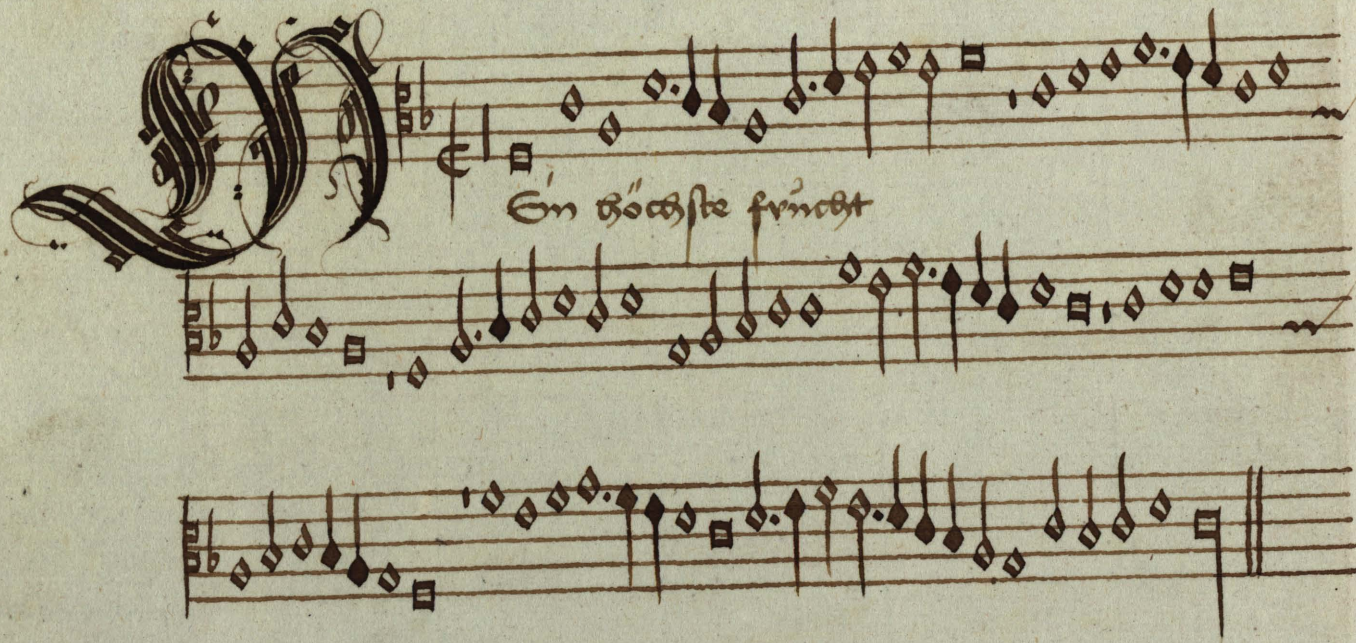 MEin höchste frucht